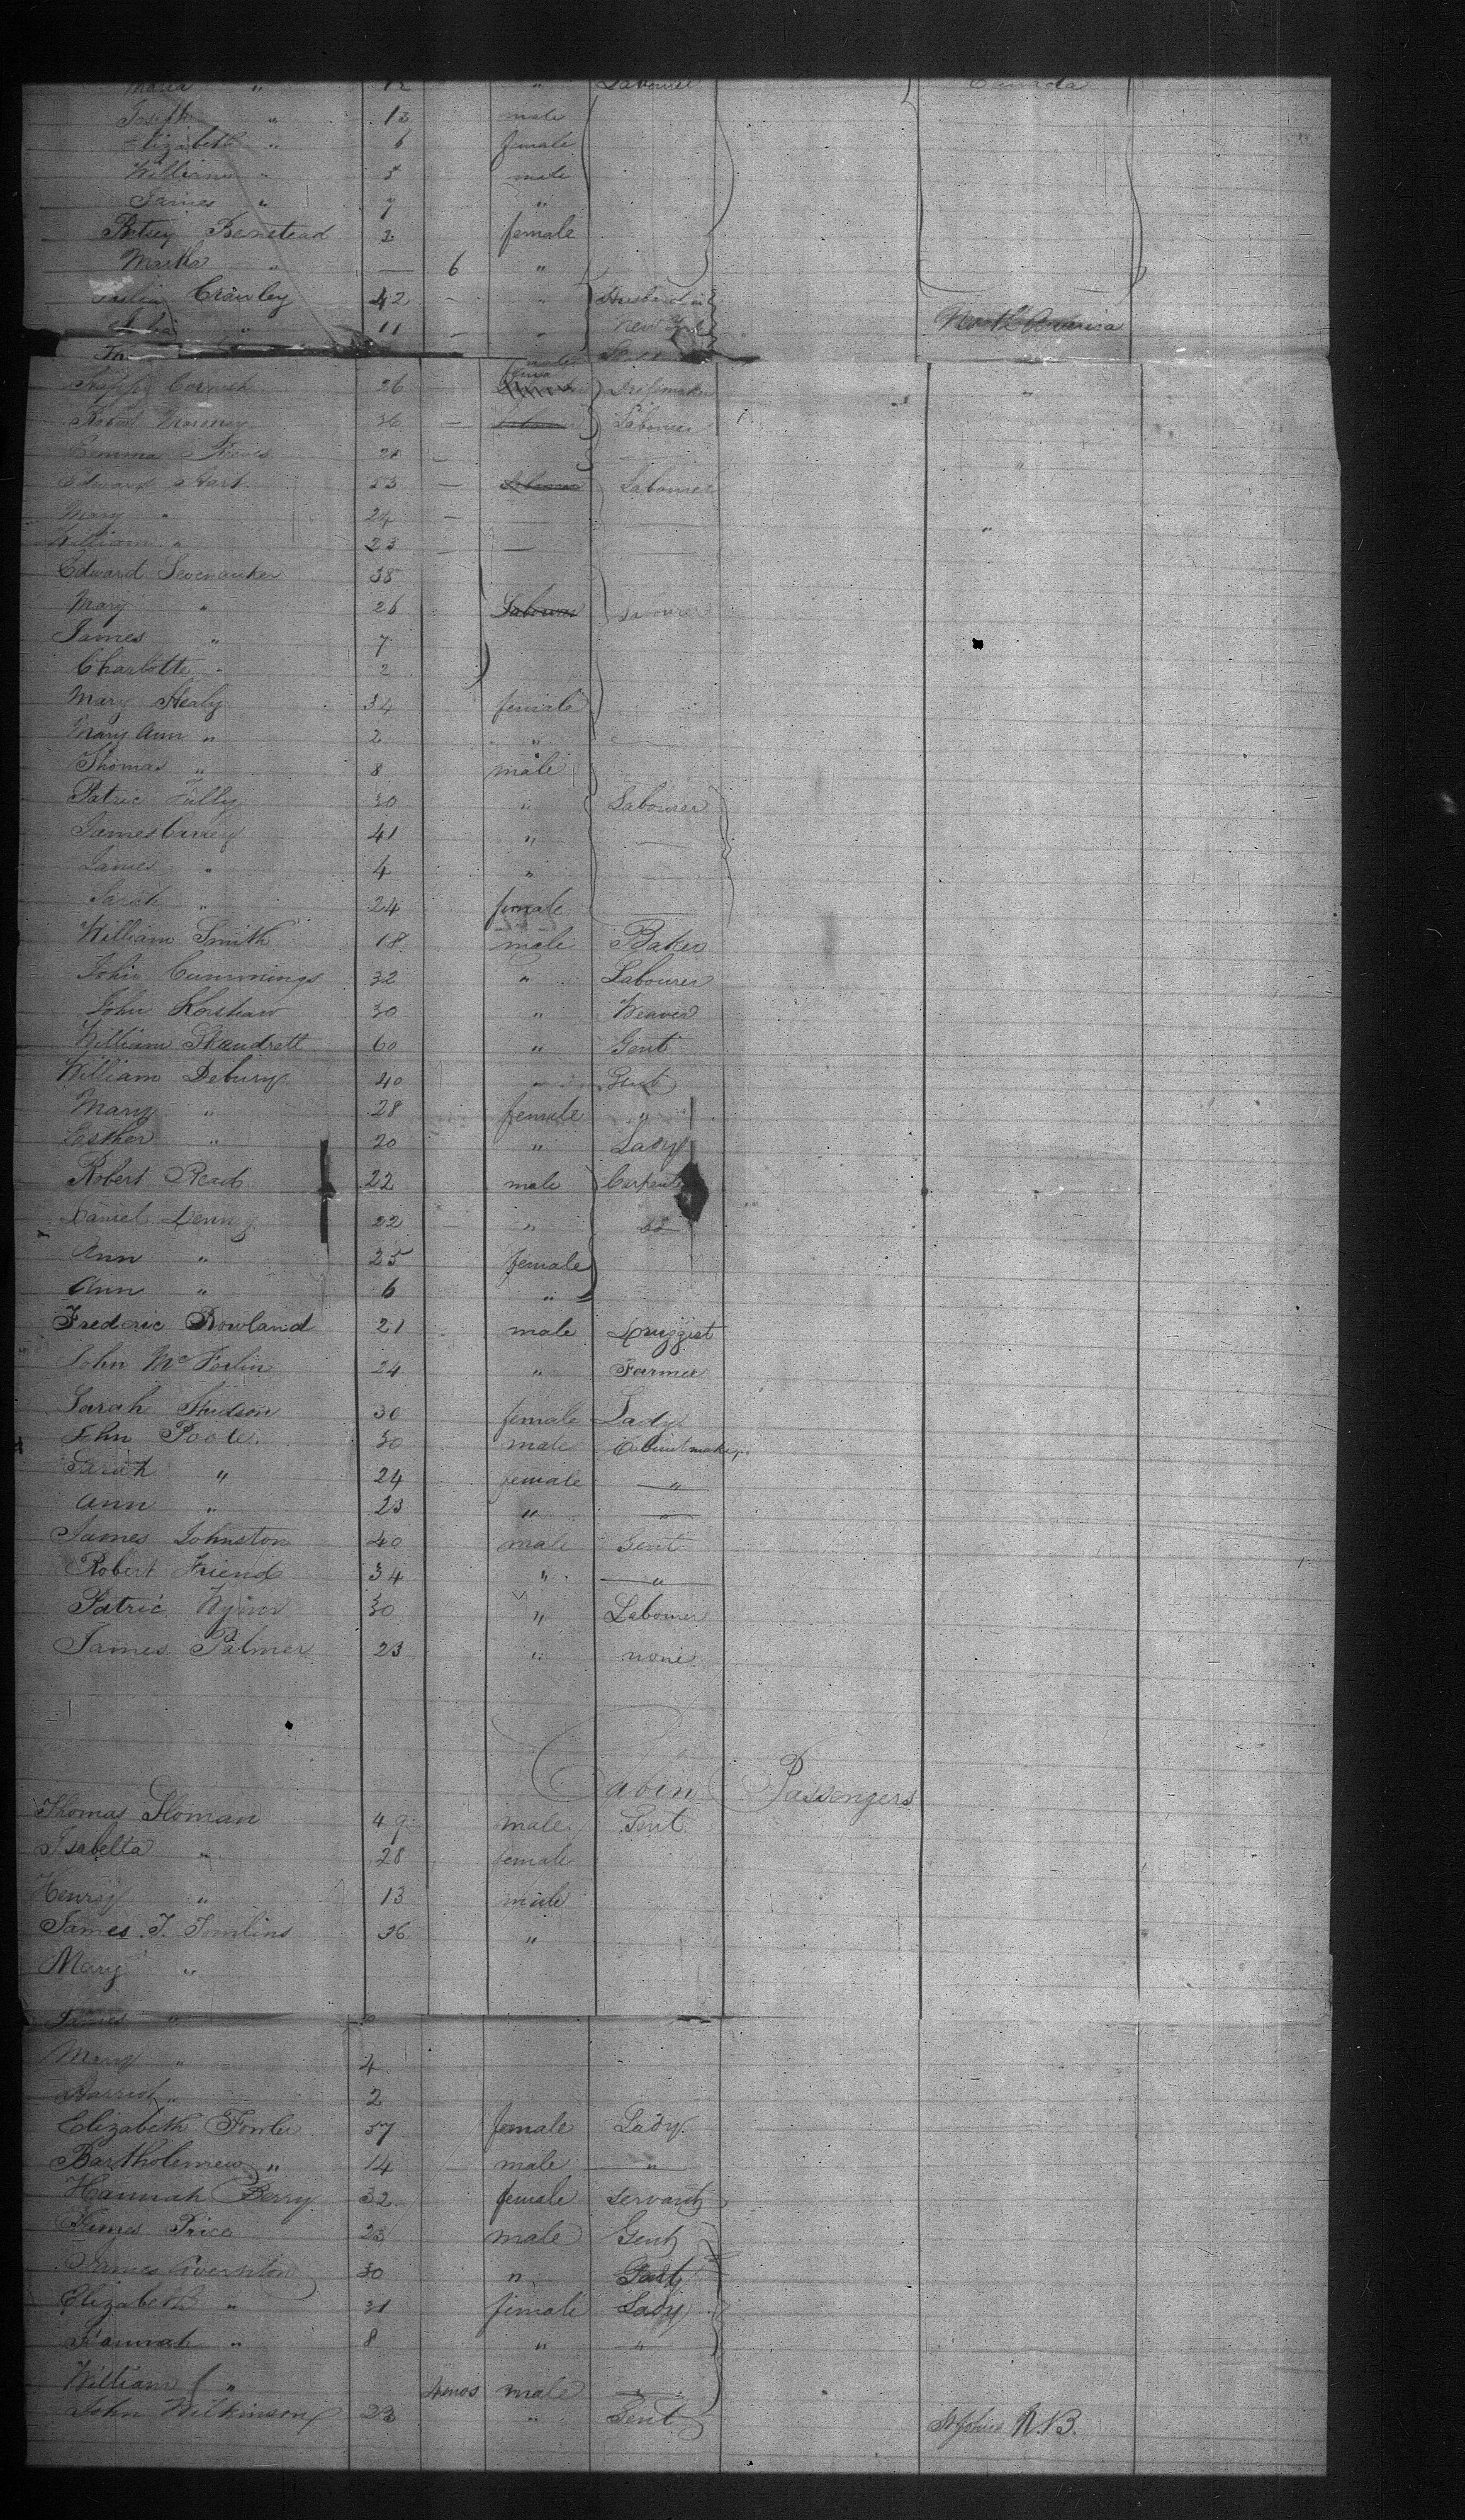 Maria " 12 " Labourer Canada
Joseph " 12 male
Elizabeth " 6 female
William " 5 male
James " 7 "
Betsey Benstead 2 female
Martha " — 6 "
Crawley 42 - " Husband in
" 11 - " New York North America
Cornish 26 — Dressmaker "
Robert 36 — Labourer Labourer
Emma 21 —
Edward Hart 53 — Labourer Labourer
Mary " 24 —
William " 23 — —
Edward 38
Mary " 26 Labourer Labourer
James " 7
Charlotte " 2
Mary Healy 34 female
Mary Ann " 2 " —
Thomas " 8 male
Patric Tully 30 " Labourer
James Carrey 41 " —
James " 4 "
Sarah " 24 female
William Smith 18 male Baker
John Cummings 32 " Labourer
John Kershaw 30 " Weaver
William Skandrett 60 " Gent
William Debury 40 " Gent
Mary " 28 female "
Esther " 20 " Lady
Robert Read 22 male Carpenter
Daniel Denny 22 — " do
Ann " 25 female
Ann " 6 "
Frederic Rowland 21 male Druggist
John 24 " Farmer
Sarah Hudson 30 female Lady
John Poole 30 male Cabinetmaker
Sarah " 24 female "
Ann " 23 " "
James Johnston 40 male Gent
Robert Friend 34 " "
Patric 30 " Labourer
James Palmer 23 " none
Cabin Passengers
Thomas Sloman 49 male Gent
Isabella " 28 female
Henry " 13 male
James T. Tomlins 36 "
Mary "
James "
Mary " 4
Harriet " 2
Elizabeth Fowler 57 female Lady
Bartholemew " 14 male "
Hannah Berry 32 female Servant
Price 23 male Gent
James 30 "
Elizabeth " 31 female Lady
Hannah " 8 " "
William " 4 mos male
John Wilkinson 23 " Gent St Johns N.B.